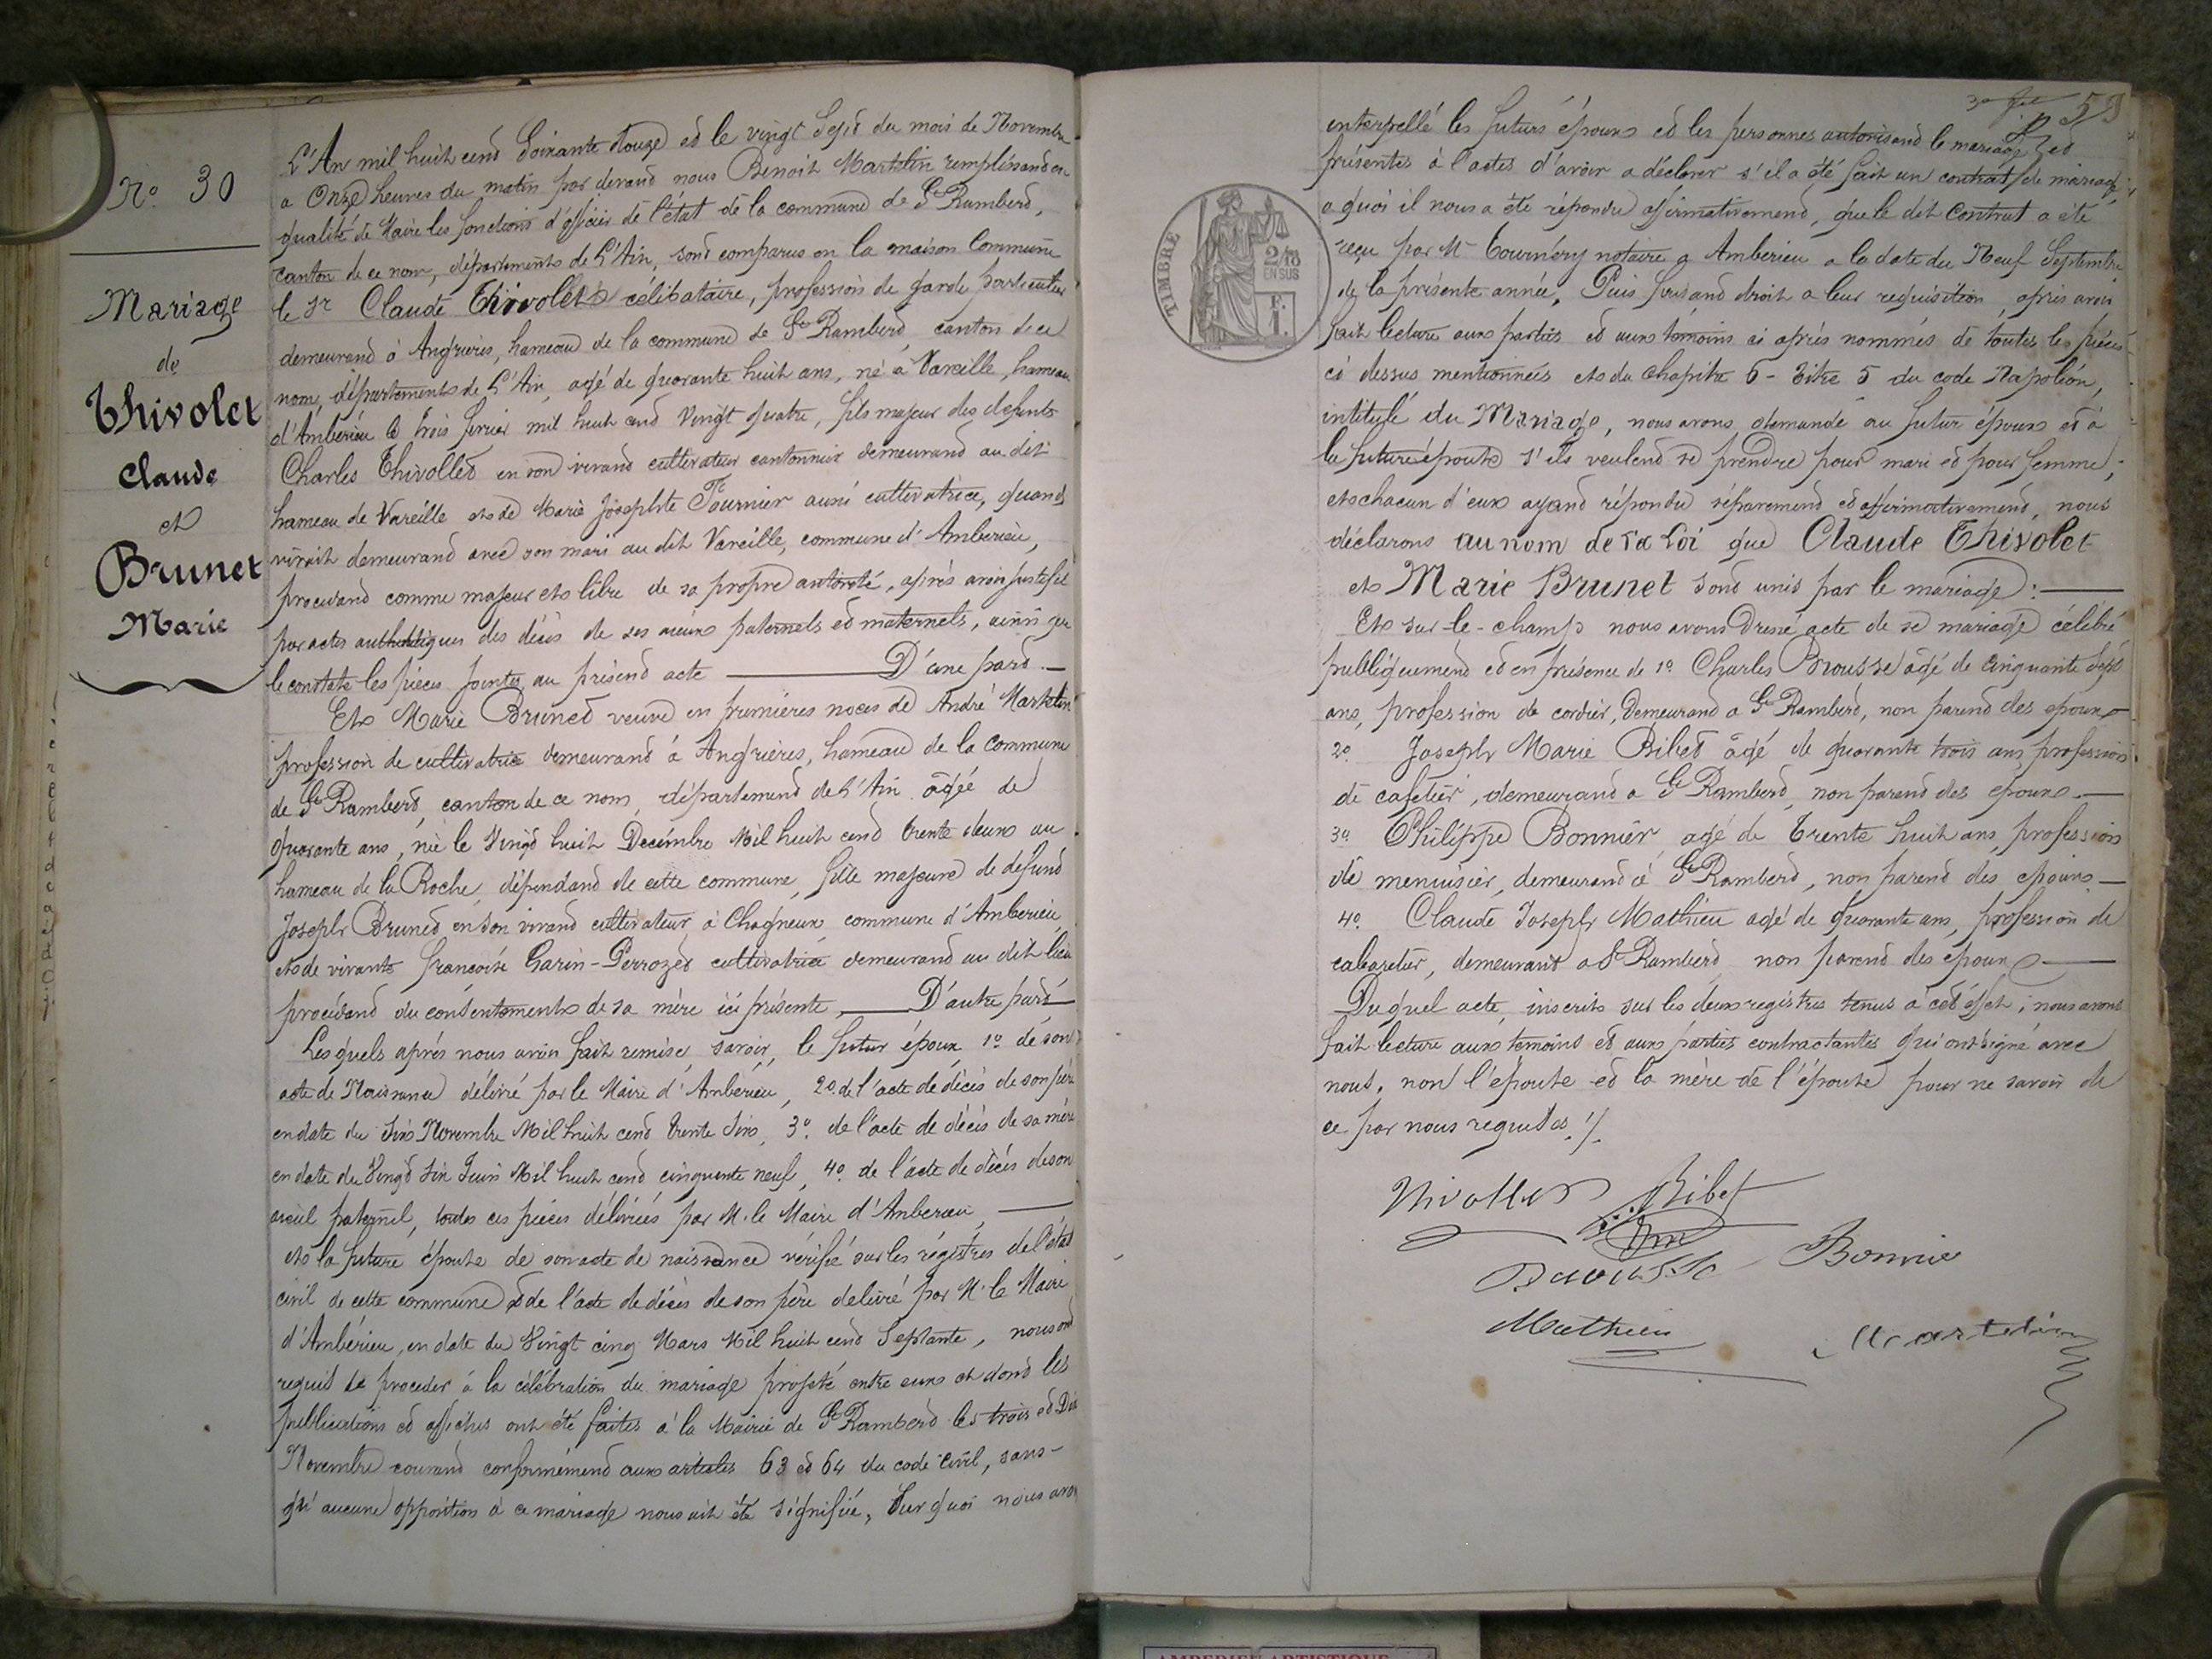 N° 30
Mariage
de
Thivolet
Claude
et
Brunet
Marie
L'An mil huit cent Soixante Douze et le vingt Sept du mois de Novembre
a Onze heures du matin par devant nous Benoit Martelin remplissant en
qualité de Maire les fonctions d'officier de l'état de la commune de St Rambert,
canton de ce nom, département de L'Ain, sont comparus en la maison Commune
le Sr Claude Thivolet célibataire, profession de garde particulier
demeurant à Angrières, hameau de la commune de St Rambert canton de ce
nom, département de L'Ain, agé de quarante huit ans, né à Vareille, hameau
d'Ambérieu le trois fevrier mil huit cent vingt quatre, fils majeur des defunts
Charles Thivollet en son vivant cultivateur cantonnier demeurant au dit
hameau de Vareille et de Marie Josephte Fournier aussi cultivatrice, quand
vivait demeurant avec son mari au dit Vareille, commune d'Ambérieu,
procédant comme majeur et libre de sa propre autorité, après avoir justifié
par actes authentiques des décès de ses aieux paternels et maternels, ainsi que
le constate les pièces jointes au présent acte D'une part.
Et Marie Brunet veuve en premières noces de André Martelin
profession de cultivatrice demeurant à Angrières, hameau de la Commune
de St Rambert, canton de ce nom, département de L'Ain âgée de
quarante ans, née le Vingt huit Decembre Mil huit cent trente deux au
hameau de la Roche, dépendant de cette commune, fille majeure de défunt
Joseph Brunet en son vivant cultivateur à Chagneux commune d'Ambérieu
et de vivante françoise Garin-Perrozet cultivatrice demeurant au dit lieu
procédant du consentement de sa mère ici présente, D'autre part
Lesquels après nous avoir fait remise, savoir, le futur époux 1° de son
acte de Naissance délivré par le Maire d'Ambérieu, 2° de l'acte de décès de son père
en date du Six Novembre Mil huit cent trente Six, 3° de l'acte de décès de sa mère
en date du Vingt Six Juin Mil huit cent cinquante neuf, 4° de l'acte de décès de son
aieul paternel, toutes ces pièces délivrées par M. le Maire d'Ambérieu,
et la future épouse de son acte de naissance vérifié sur les régistres de l'état
civil de cette commune & de l'acte de décès de son père delivré par M. le Maire
d'Ambérieu, en date du Vingt cinq Mars Mil huit cent Septante, nous ont
requis de proceder à la célébration du mariage projeté entre eux et dont les
publications et affiches ont été faites à la Mairie de St Rambert les trois et Dix
Novembre courant conformément aux articles 63 et 64 du code Civil, sans
qu'aucune opposition à ce mariage nous ait été signifiée, Sur quoi nous avons
59
TIMBRE
2/10
EN SUS
F.
1.
interpellé les futurs époux et les personnes autorisant le mariage et
présentes à l'actes d'avoir a déclarer s'il a été fait un contrat de mariage,
a quoi il nous a été répondu affirmativement, que le dit Contrat a été
reçu par Me Tournéry notaire a Amberieu a la date du Neuf Septembre
de la présente année, Puis faisant droit a leur requisition, après avoir
fait lecture aux parties et aux témoins ci après nommés de toutes les pièces
ci dessus mentionnées et du Chapitre 6 - Titre 5 du code Napoléon,
intitulé du Mariage, nous avons demandé au futur époux et à
la future épouse s'ils veulent se prendre pour mari et pour femme;
et chacun d'eux ayant répondu séparement et affirmativement, nous
déclarons au nom de la loi que Claude Thivolet
et Marie Brunet sont unis par le mariage:
Et sur-le-champ nous avons dressé acte de se mariage célébré
publiquement et en présence de 1° Charles Brousse âgé de cinquante sept
ans, profession de cordier, demeurant a St Rambert, non parent des epoux
2° Joseph Marie Bibet âgé de quarante trois ans, profession
de cafetier, demeurant a St Rambert, non parent des epoux.
3° Philippe Bonnier agé de trente huit ans, profession
de menuisier, demeurant à St Rambert, non parent des époux
4° Claude Joseph Mathieu agé de quarante ans, profession de
cabaretier, demeurant a St Rambert non parent des époux
Duquel acte, inscrits sur les deux registres tenus à cet effet, nous avons
fait lecture aux temoins et aux parties contractantes qui ont signé avec
nous, non l'épouse et la mère de l'épouse pour ne savoir de
ce par nous requises ./.
Thivollet
Bibet
Brousse
Bonnier
Mathieu
Martelin
AMBERIEU ARTISTIQUE